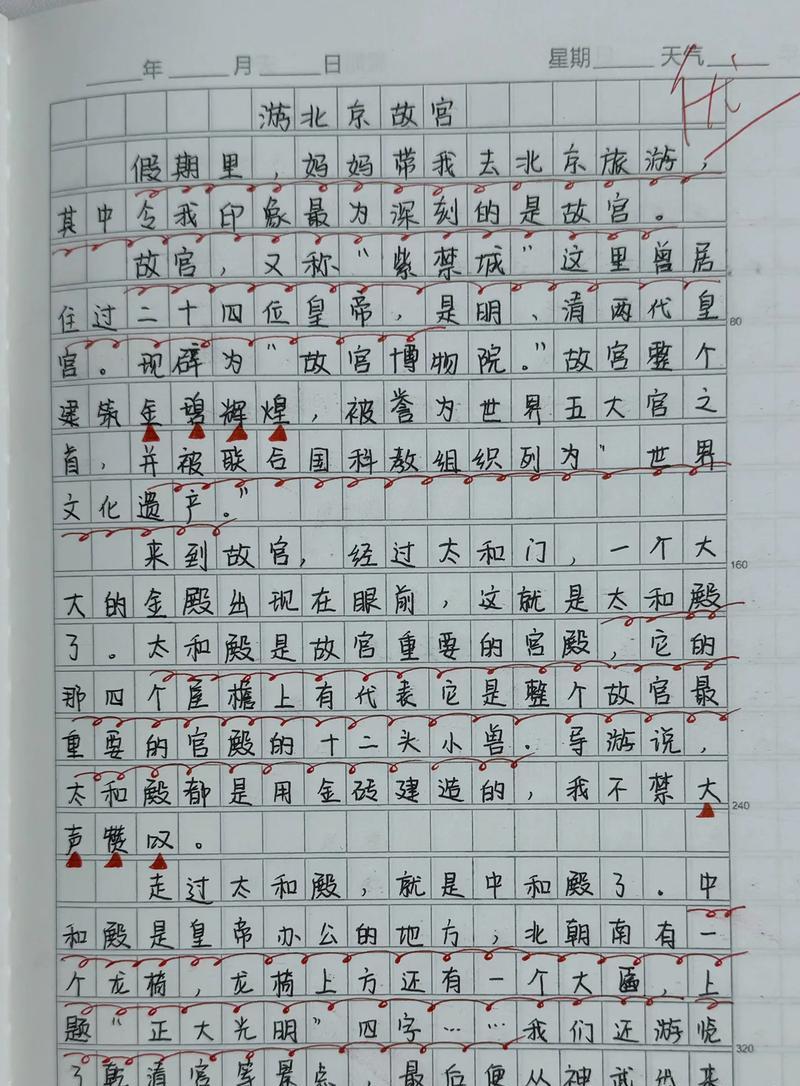 年 月 日 星期 天气
游北京故宫
假期里，妈妈带我去北京旅游，
其中令我印象最为深刻的是故宫。
故宫，又称“紫禁城”这里曾居
住过二十四位皇帝，是明、清两代皇
宫。现辟为“故宫博物院。”故宫整个
80
建筑金碧辉煌，被誉为世界五大宫之
首，并被联合国科教组织列为“世界
文化遗产。”
来到故宫，经过太和门，一个大
160
大的金殿出现在眼前，这就是太和殿
了。太和殿是故宫重要的宫殿，它的
那四个屋檐上有代表它是整个故宫最
重要的宫殿的十二头小兽。导游说，
太和殿都是用金砖建造的，我不禁大
240
声赞叹。
走过太和殿，就是中和殿了。中
和殿是皇帝办公的地方，北朝南有一
个龙椅，龙椅上方还有一个大匾，上
题“正大光明”四字……我们还游览
320
了乾清宫等景点，最后便从神武